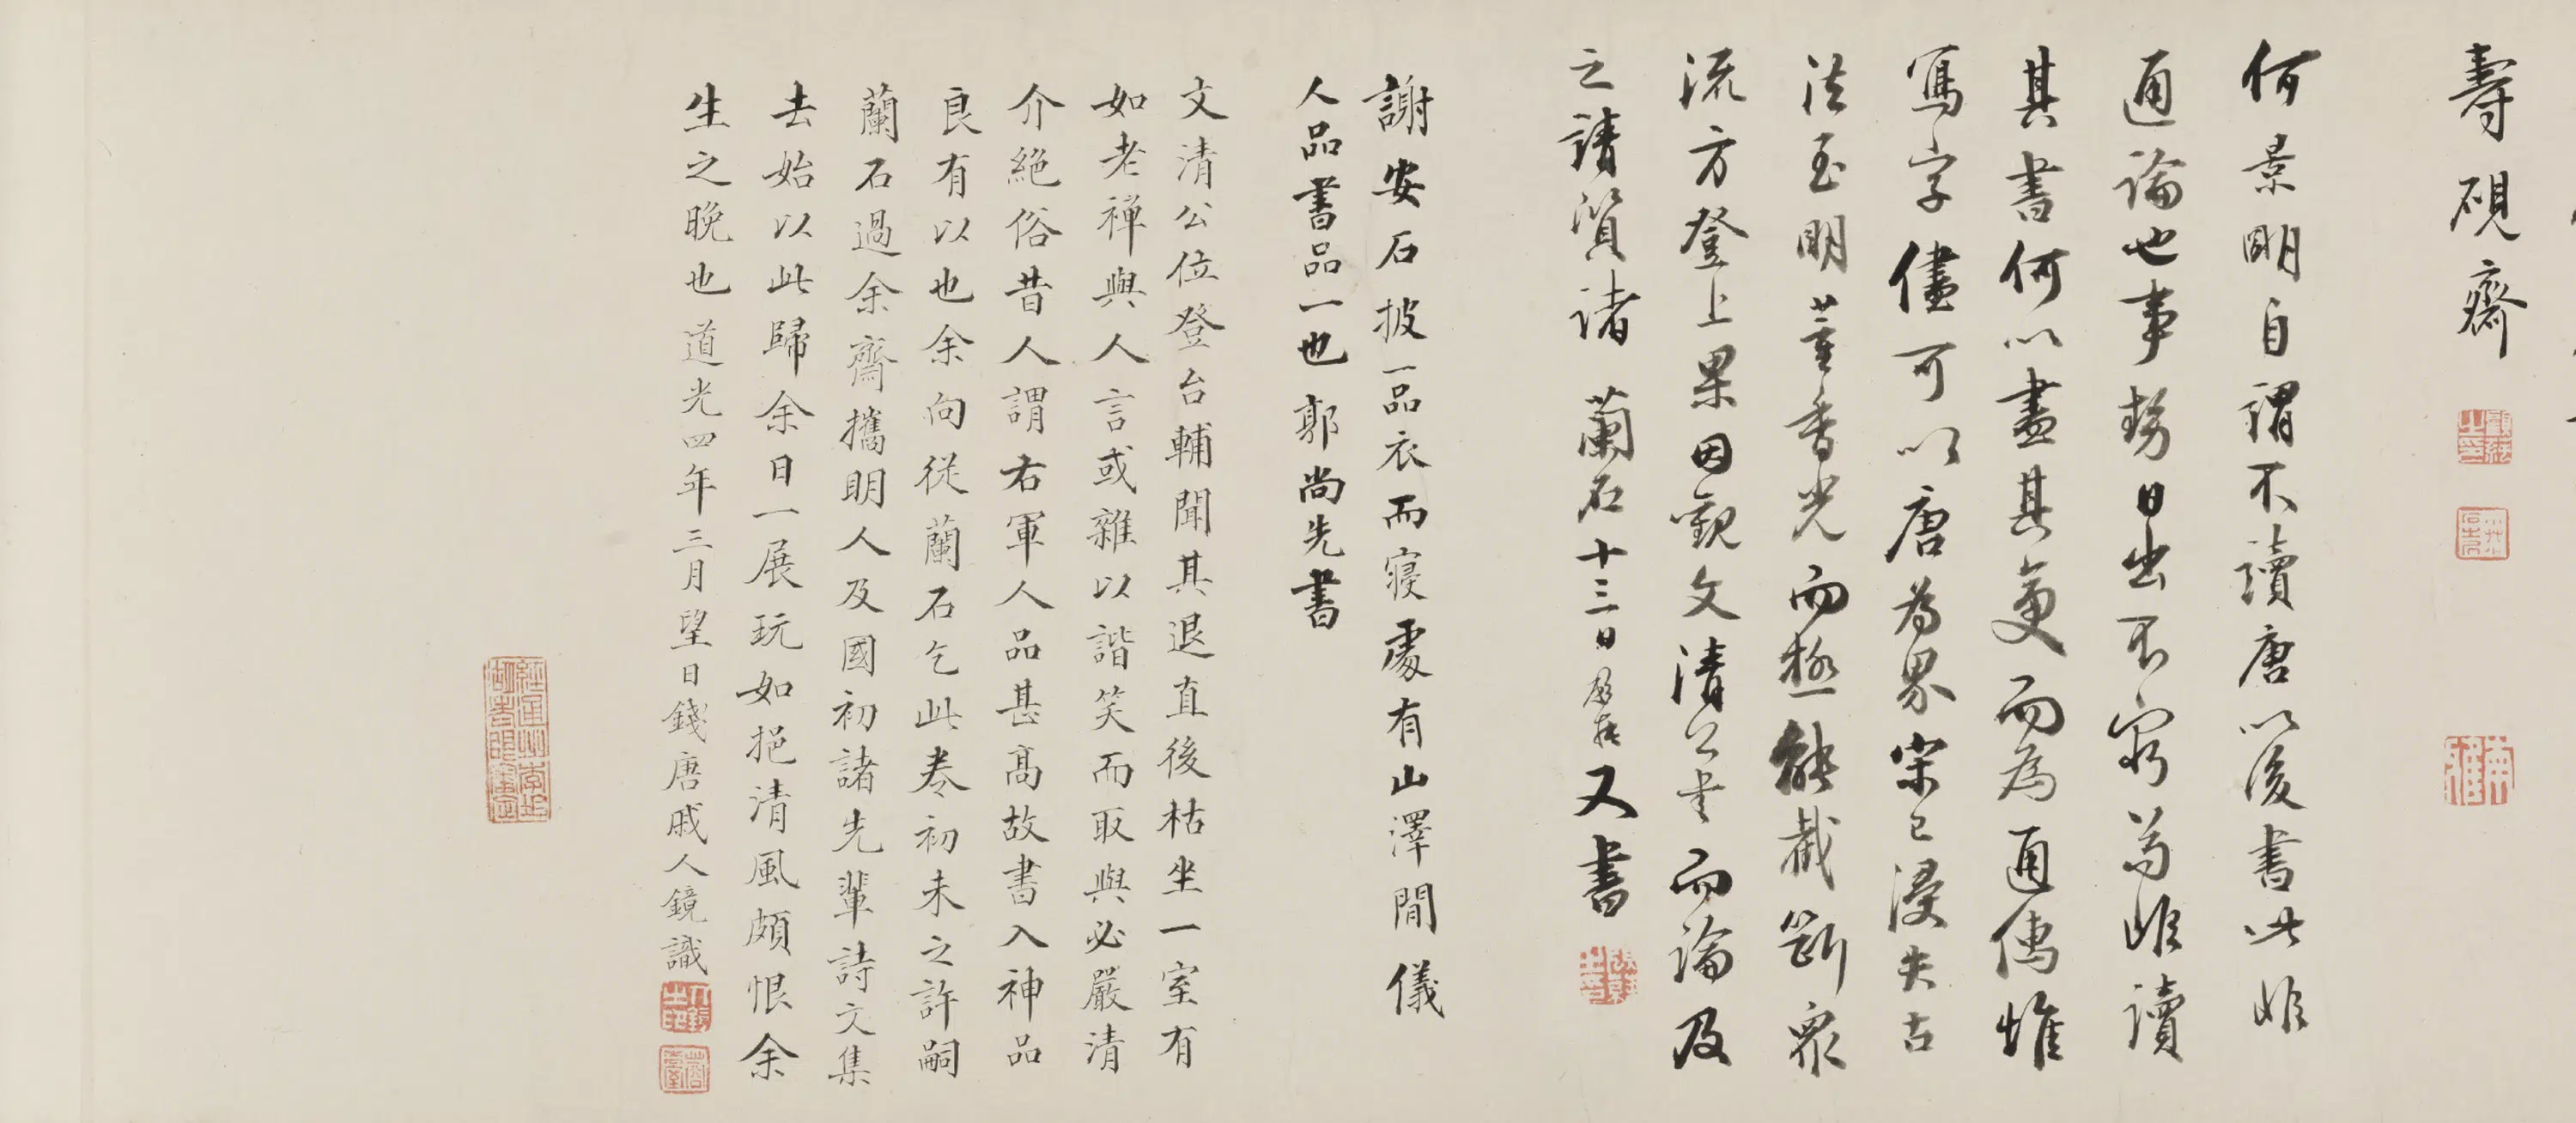 壽硯齋
何景明自謂不讀唐以後書此非
通論也事務日出不窮苟非讀
其書何以盡其變而為通儒惟
寫字儘可以唐為界宋已浸失古
法至明董香光而極能截斷眾
流方登上果因觀文清公書而論及
之請質諸 蘭石 十三日 又書
謝安石披一品衣而寢處有山澤間儀
人品書品一也 郭尚先書
文清公位登台輔聞其退直後枯坐一室有
如老禪與人言或雜以諧笑而取與必嚴清
介絕俗昔人謂右軍人品甚高故書入神品
良有以也余向從蘭石乞此卷初未之許嗣
蘭石過余齋攜明人及國初諸先輩詩文集
去始以此歸余日一展玩如挹清風頗恨余
生之晚也道光四年三月望日錢唐戚人鏡識